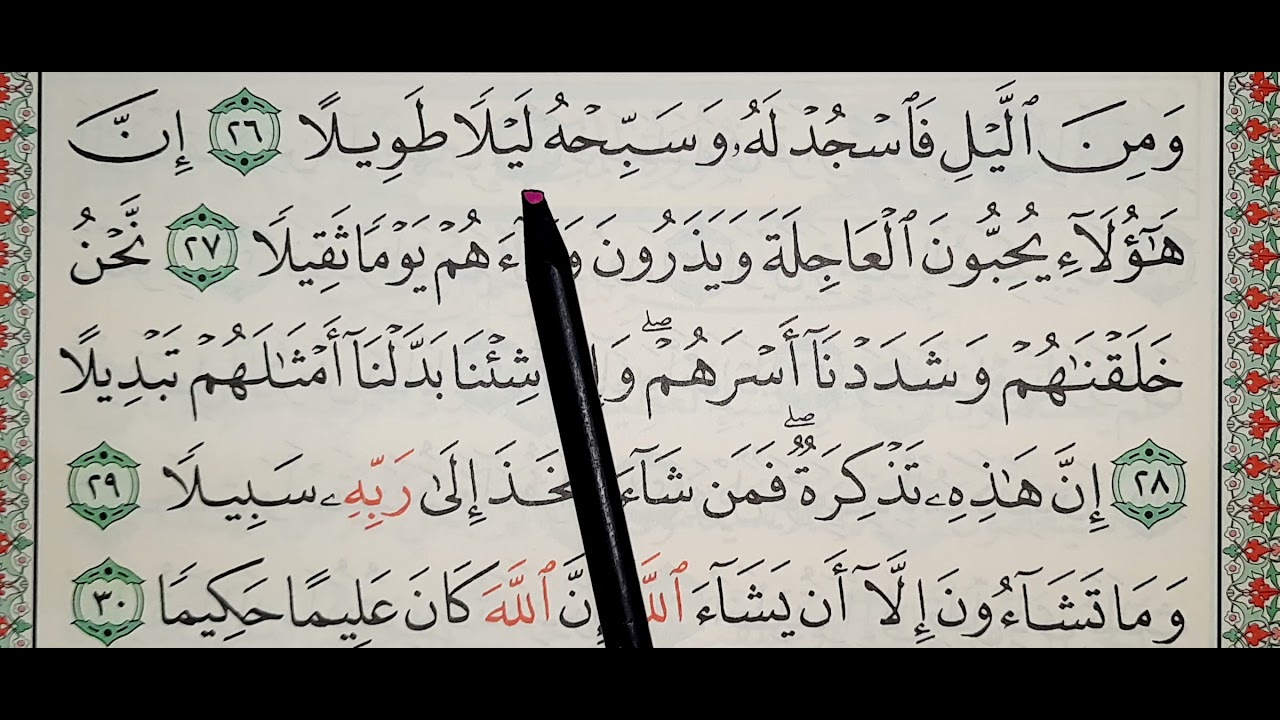 وَمِنَ ٱلَّيْلِ فَٱسْجُدْ لَهُۥ وَسَبِّحْهُ لَيْلًا طَوِيلًا ٢٦ إِنَّ
هَٰٓؤُلَآءِ يُحِبُّونَ ٱلْعَاجِلَةَ وَيَذَرُونَ يَوْمًا ثَقِيلًا ٢٧ نَّحْنُ
خَلَقْنَٰهُمْ وَشَدَدْنَآ أَسْرَهُمْ ۖ شِئْنَا بَدَّلْنَآ أَمْثَٰلَهُمْ تَبْدِيلًا
٢٨ إِنَّ هَٰذِهِۦ تَذْكِرَةٌ ۖ فَمَن شَآءَ إِلَىٰ رَبِّهِۦ سَبِيلًا ٢٩
وَمَا تَشَآءُونَ إِلَّآ أَن يَشَآءَ ٱللَّهُ إِنَّ ٱللَّهَ كَانَ عَلِيمًا حَكِيمًا ٣٠